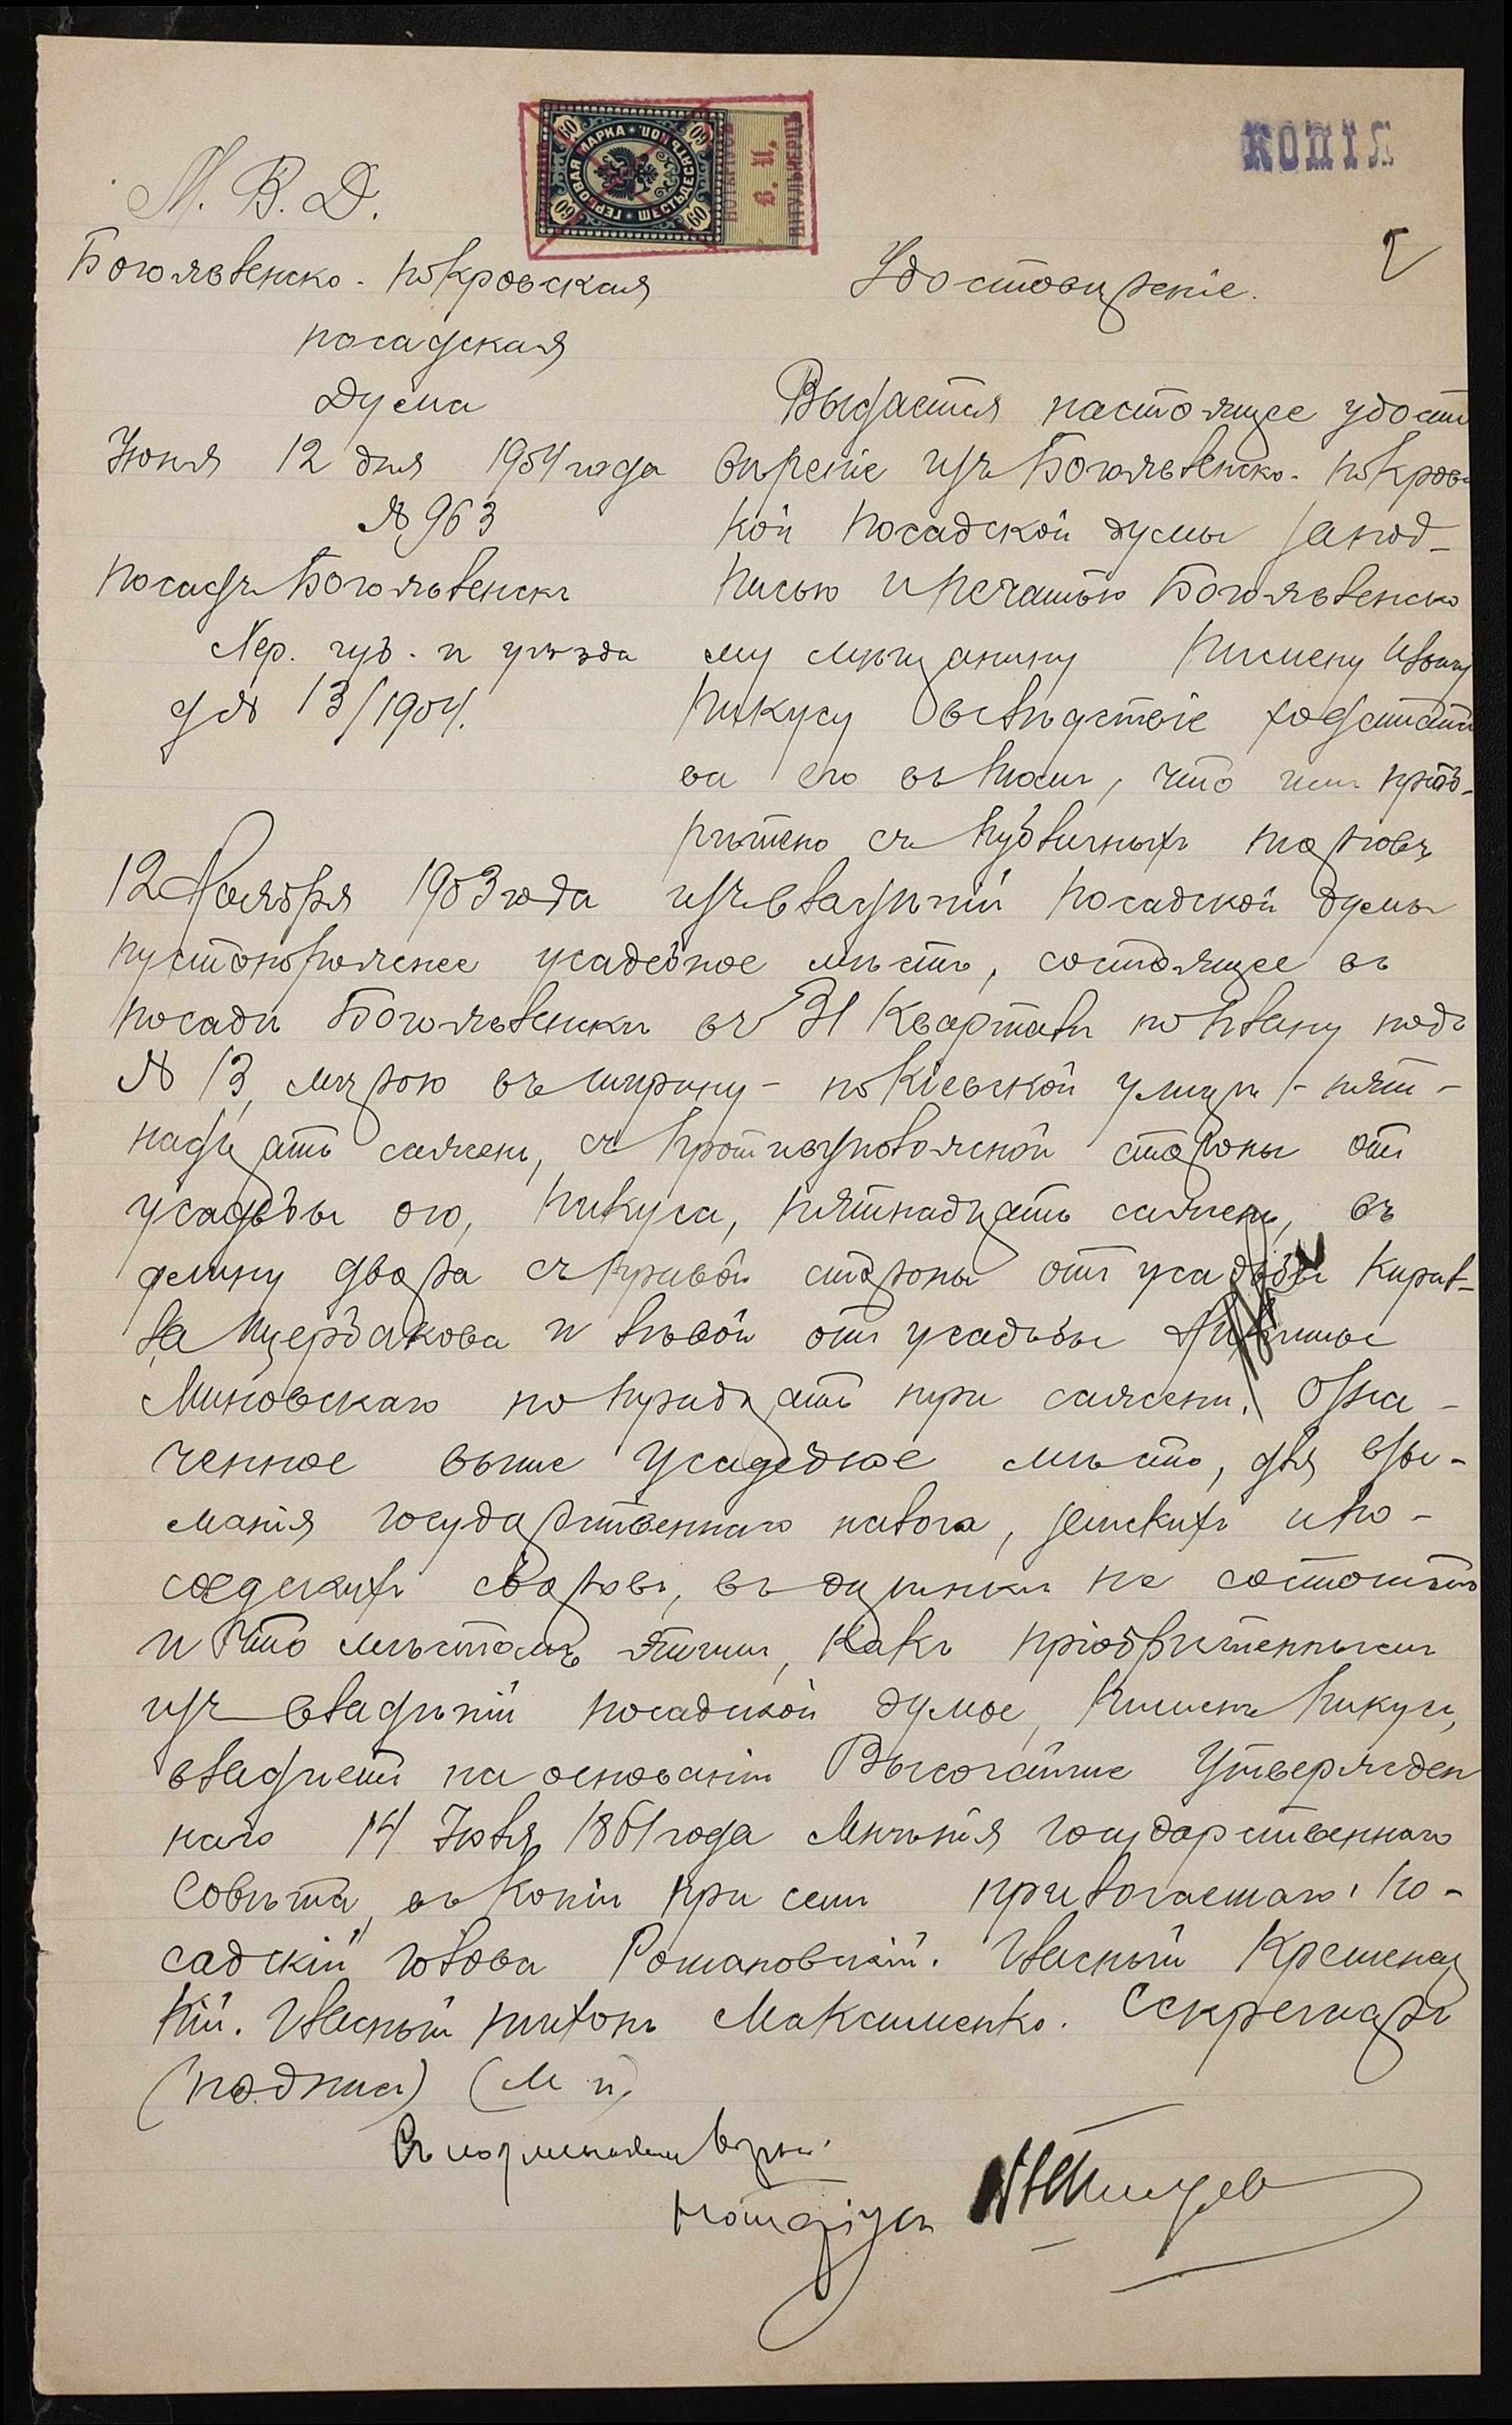 КОПІЯ
ГЕРБОВАЯ МАРКА
ШЕСТЬДЕСЯТЪ КОП
60 60 60 60
НОТАРІУСЪ
В. И.
М. В. Д.
Богоявленско-Покровская
посадская
Дума
Іюня 12 дня 1904 года
№ 963
Посадъ Богоявленскъ
Хер. губ. и уѣзда
д № 13/1904.
Удостовѣреніе.
Выдается настоящее удосто
вѣреніе изъ Богоявленско-Покровс
кой Посадской думы за под-
писью и печатью Богоявленско
му мѣщанину Пимену
Пикусу вслѣдствіе ходатайст
ва его въ томъ, что имъ пріоб-
рѣтено съ публичныхъ торговъ
12 Ноября 1903 года изъ владѣній посадской думы
пустопорожнее усадебное мѣсто, состоящее въ
посадѣ Богоявленскѣ въ квартале по плану подъ
№ 13, мѣрою въ ширину - по Кіевской улицѣ - пят-
надцать сажень, съ противуположной стороны отъ
усадьбы его, Пикуса, пятнадцать сажень, въ
длину двора съ правой стороны отъ усадьбы Кирил-
ла Щербакова и лѣвой отъ усадьбы
Миновскаго по тридцать три сажени. Озна-
ченное выше усадебное мѣсто, для взы-
манія государственнаго налога, земскихъ и по-
садскихъ сборовъ, въ оцѣнкѣ не состоитъ
и что мѣстомъ этимъ, какъ пріобрѣтеннымъ
изъ владѣній посадской думое, Пименъ Пикусъ,
владѣетъ на основаніи Высочайше Утвержден
наго 14 Іюля 1861 года Мнѣнія Государственнаго
Совѣта, въ копіи при семъ прилагаемаго. По-
садскій голова Романовскій. Гласный Кременец
кій. Гласный Тихонъ Максименко. Секретарь
(подпись) (М п)
Съ подлиннымъ вѣрно:
Нотаріусъ